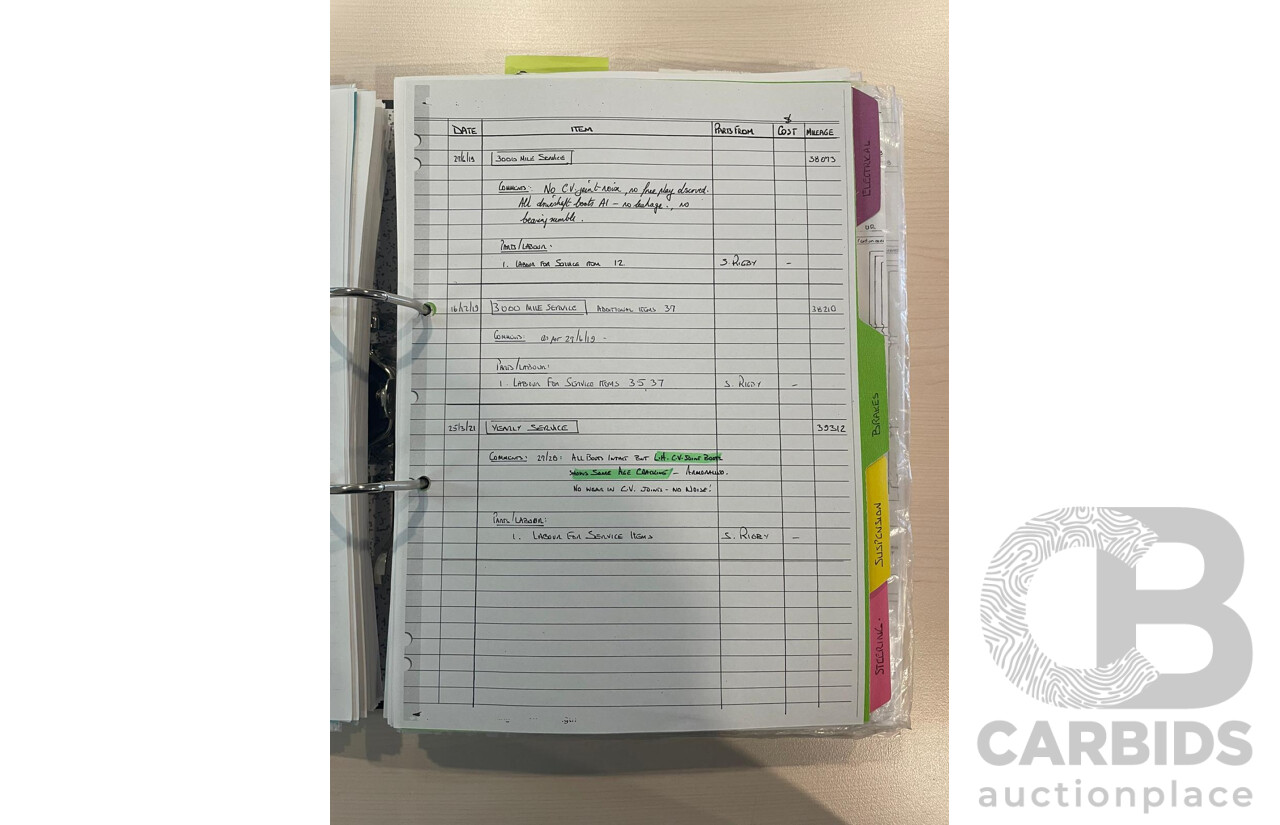 $
DATE ITEM PARTS FROM COST MILEAGE
27/6/19 3000 MILE SERVICE 38073
COMMENTS: No C.V. joint noise, no free play discerned.
All driveshaft boots A1 – no leakage, no
bearing rumble.
PARTS/LABOUR:
1. LABOUR FOR SERVICE ITEM 12 S. RIGBY –
16/12/19 3000 MILE SERVICE ADDITIONAL ITEMS 37 38210
COMMENTS: as per 27/6/19 –
PARTS/LABOUR:
1. LABOUR FOR SERVICE ITEMS 35, 37 S. RIGBY –
25/3/21 YEARLY SERVICE 39312
COMMENTS: 27/28: ALL BOOTS INTACT BUT L.H. C.V. JOINT BOOTS
SHOWS SOME AGE CRACKING – ARMORALLED.
NO WEAR IN C.V. JOINTS – NO NOISE!
PARTS/LABOUR:
1. LABOUR FOR SERVICE ITEMS S. RIGBY –
ELECTRICAL
BRAKES
SUSPENSION
STEERING.
CB
CARBIDS
auctionplace